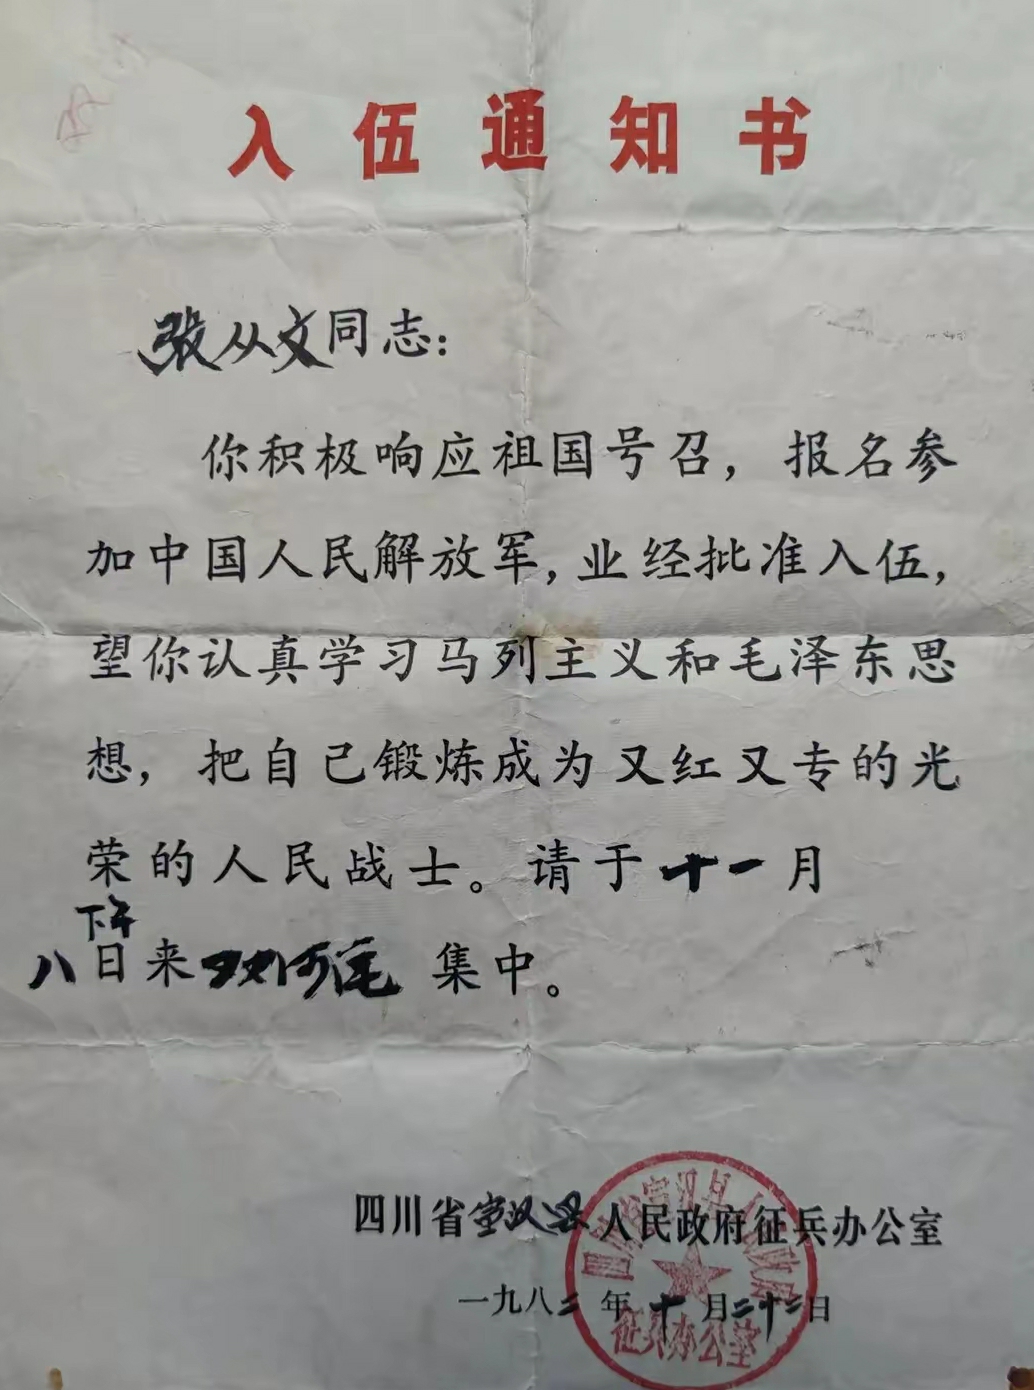 入伍通知书
张从文同志：
你积极响应祖国号召，报名参
加中国人民解放军，业经批准入伍，
望你认真学习马列主义和毛泽东思
想，把自己锻炼成为又红又专的光
荣的人民战士。请于十一月
下午
八日来双河 集中。
四川省宣汉县人民政府征兵办公室
一九八二年十月二十二日
四川省宣汉县人民政府
征兵办公室